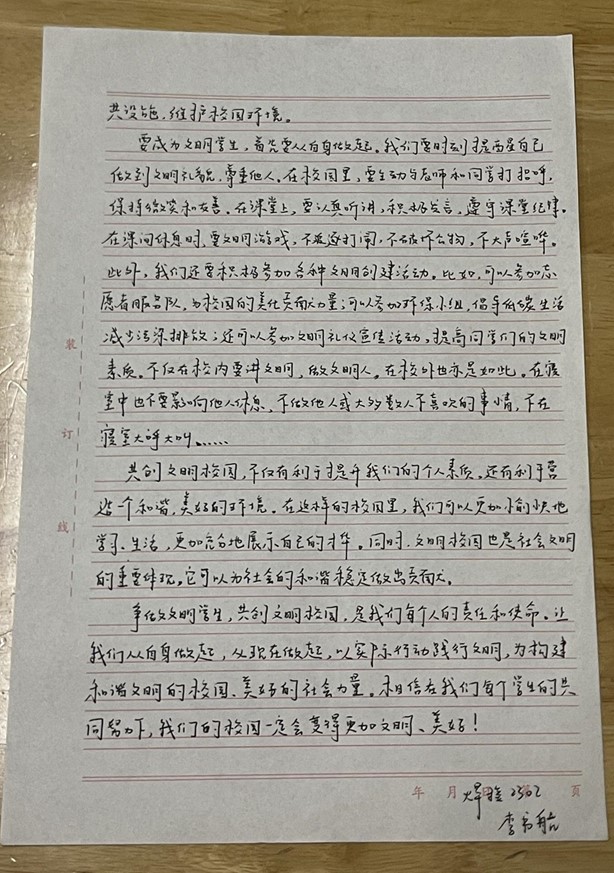 共设施,维护校园环境。
要成为文明学生,首先要从自身做起。我们要时刻提高自己
做到文明礼貌,尊重他人。在校园里,要主动与老师和同学打招呼,
保持微笑和友善。在课堂上,要认真听讲,积极发言,遵守课堂纪律。
在课间休息时,要文明游戏,不追逐打闹,不破坏公物,不大声喧哗。
此外,我们还要积极参加各种文明创建活动。比如,可以参加志
愿者服务队,为校园的美化贡献力量;可以参加环保小组,倡导低碳生活
减少污染排放;还可以参加文明礼仪宣传活动,提高同学们的文明
素质。不仅在校内要讲文明,做文明人。在校外也亦是如此。在寝
室中也不要影响他人休息,不做他人或大多数人不喜欢的事情,不在
寝室大呼大叫……
共创文明校园,不仅有利于提升我们的个人素质。还有利于营
造一个和谐、美好的环境。在这样的校园里,我们可以更加愉快地
学习、生活,更加充分地展示自己的才华。同时,文明校园也是社会文明
的重要体现,它可以为社会的和谐稳定做出贡献。
争做文明学生,共创文明校园,是我们每个人的责任和使命。让
我们从自身做起,从现在做起,以实际行动践行文明,为构建
和谐文明的校园、美好的社会力量。相信在我们每个学生的共
同努力下,我们的校园一定会变得更加文明、美好!
装
订
线
年 月 页
焊检2302
李书航